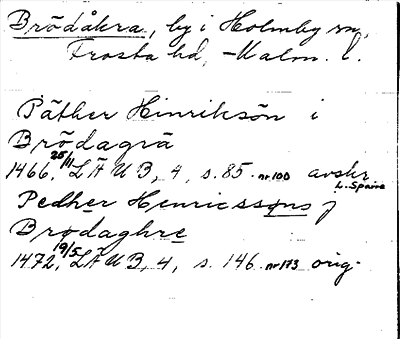 Brödåkra, by i Holmby sn,
Frosta hd, Malm. l.
Päther Hinriksön i
Brödagrä
1466 25/11, LÄUB, 4, s. 85. nr 100 avskr
L. Sparre
Pedher Henricssøns j
Brødaghre
1472 19/5, LÄUB, 4, s. 146. nr 173 orig.